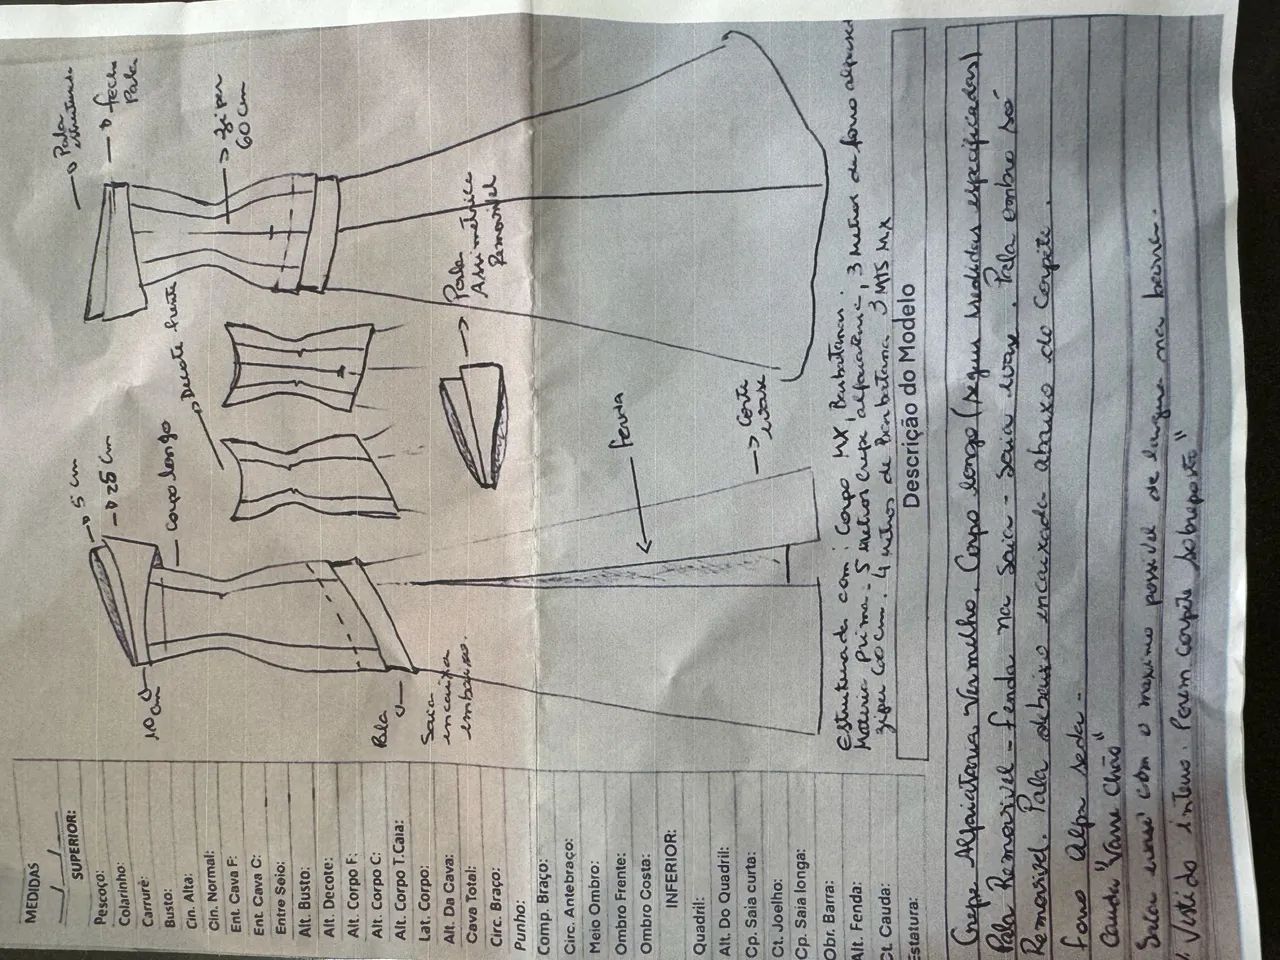 MEDIDAS
__/__/__
SUPERIOR:
Pescoço:
Colarinho:
Carrurê:
Busto:
Cin. Alta:
Cin. Normal:
Ent. Cava F:
Ent. Cava C:
Entre Seio:
Alt. Busto:
Alt. Decote:
Alt. Corpo F:
Alt. Corpo C:
Alt. Corpo T.Caia:
Lat. Corpo:
Alt. Da Cava:
Cava Total:
Circ. Braço:
Punho:
Comp. Braço:
Circ. Antebraço:
Meio Ombro:
Ombro Frente:
Ombro Costa:
INFERIOR:
Quadril:
Alt. Do Quadril:
Cp. Saia curta:
Ct. Joelho:
Cp. Saia longa:
Obr. Barra:
Alt. Fenda:
Ct. Cauda:
Estatura:
5 cm
25 cm
corpo longo
Decote frente
10 cm
Pala
Saia
encaixa
embaixo.
Pala
estruturada
fecho
Pala
ziper
60 cm
Pala
Assimetrica
Removivel
fenda
Corte
evase
Estruturada com: Corpo MX, Barbatanas.
Materia prima - 5 metros crepe alfaiataria, 3 metros de forro alfaseda
ziper 60 cm. 4 metros de Barbatana 3 MTS MX
Descrição do Modelo
Crepe Alfaiataria Vermelho. Corpo longo (segue medidas especificadas)
Pala Removivel - fenda na saia - saia evase. Pala ombro só
Removivel. Pala debaixo encaixada abaixo do Corpete.
forro Alfa seda -
cauda "Varre Chão"
Saia evasê com o maximo possivel de largura na barra.
Vestido inteiro. Porem corpete sobreposto"